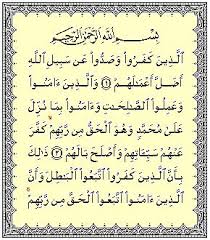 بِسْمِ ٱللَّهِ ٱلرَّحْمَٰنِ ٱلرَّحِيمِ
ٱلَّذِينَ كَفَرُواْ وَصَدُّواْ عَن سَبِيلِ ٱللَّهِ
أَضَلَّ أَعْمَٰلَهُمْ ۝١ وَٱلَّذِينَ ءَامَنُواْ
وَعَمِلُواْ ٱلصَّٰلِحَٰتِ وَءَامَنُواْ بِمَا نُزِّلَ
عَلَىٰ مُحَمَّدٍ وَهُوَ ٱلْحَقُّ مِن رَّبِّهِمْ كَفَّرَ
عَنْهُمْ سَيِّـَٔاتِهِمْ وَأَصْلَحَ بَالَهُمْ ۝٢ ذَٰلِكَ
بِأَنَّ ٱلَّذِينَ كَفَرُواْ ٱتَّبَعُواْ ٱلْبَٰطِلَ وَأَنَّ
ٱلَّذِينَ ءَامَنُواْ ٱتَّبَعُواْ ٱلْحَقَّ مِن رَّبِّهِمْ